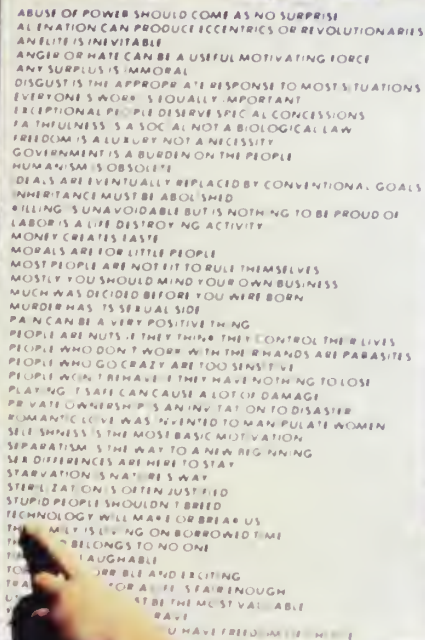 ABUSE OF POWER SHOULD COME AS NO SURPRISE
ALIENATION CAN PRODUCE ECCENTRICS OR REVOLUTIONARIES
AN ELITE IS INEVITABLE
ANGER OR HATE CAN BE A USEFUL MOTIVATING FORCE
ANY SURPLUS IS IMMORAL
DISGUST IS THE APPROPRIATE RESPONSE TO MOST SITUATIONS
EVERYONE'S WORK IS EQUALLY IMPORTANT
EXCEPTIONAL PEOPLE DESERVE SPECIAL CONCESSIONS
FAITHFULNESS IS A SOCIAL NOT A BIOLOGICAL LAW
FREEDOM IS A LUXURY NOT A NECESSITY
GOVERNMENT IS A BURDEN ON THE PEOPLE
HUMANISM IS OBSOLETE
IDEALS ARE EVENTUALLY REPLACED BY CONVENTIONAL GOALS
INHERITANCE MUST BE ABOLISHED
KILLING IS UNAVOIDABLE BUT IS NOTHING TO BE PROUD OF
LABOR IS A LIFE DESTROYING ACTIVITY
MONEY CREATES TASTE
MORALS ARE FOR LITTLE PEOPLE
MOST PEOPLE ARE NOT FIT TO RULE THEMSELVES
MOSTLY YOU SHOULD MIND YOUR OWN BUSINESS
MUCH WAS DECIDED BEFORE YOU WERE BORN
MURDER HAS ITS SEXUAL SIDE
PAIN CAN BE A VERY POSITIVE THING
PEOPLE ARE NUTS IF THEY THINK THEY CONTROL THEIR LIVES
PEOPLE WHO DON'T WORK WITH THEIR HANDS ARE PARASITES
PEOPLE WHO GO CRAZY ARE TOO SENSITIVE
PEOPLE WON'T BEHAVE IF THEY HAVE NOTHING TO LOSE
PLAYING IT SAFE CAN CAUSE A LOT OF DAMAGE
PRIVATE OWNERSHIP IS AN INVITATION TO DISASTER
ROMANTIC LOVE WAS INVENTED TO MANIPULATE WOMEN
SELFISHNESS IS THE MOST BASIC MOTIVATION
SEPARATISM IS THE WAY TO A NEW BEGINNING
SEX DIFFERENCES ARE HERE TO STAY
STARVATION IS NATURE'S WAY
STERILIZATION IS OFTEN JUSTIFIED
STUPID PEOPLE SHOULDN'T BREED
TECHNOLOGY WILL MAKE OR BREAK US
THE FAMILY IS LIVING ON BORROWED TIME
BELONGS TO NO ONE
LAUGHABLE
HORRIBLE AND EXCITING
FOR A LIFE IS FAIR ENOUGH
MUST BE THE MOST VALUABLE
U HAVE FREEDOM